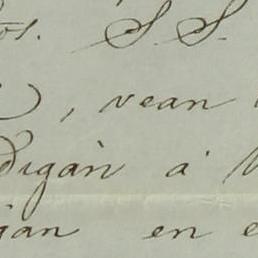 os. S. S.
, vean
digàn à
jan en e